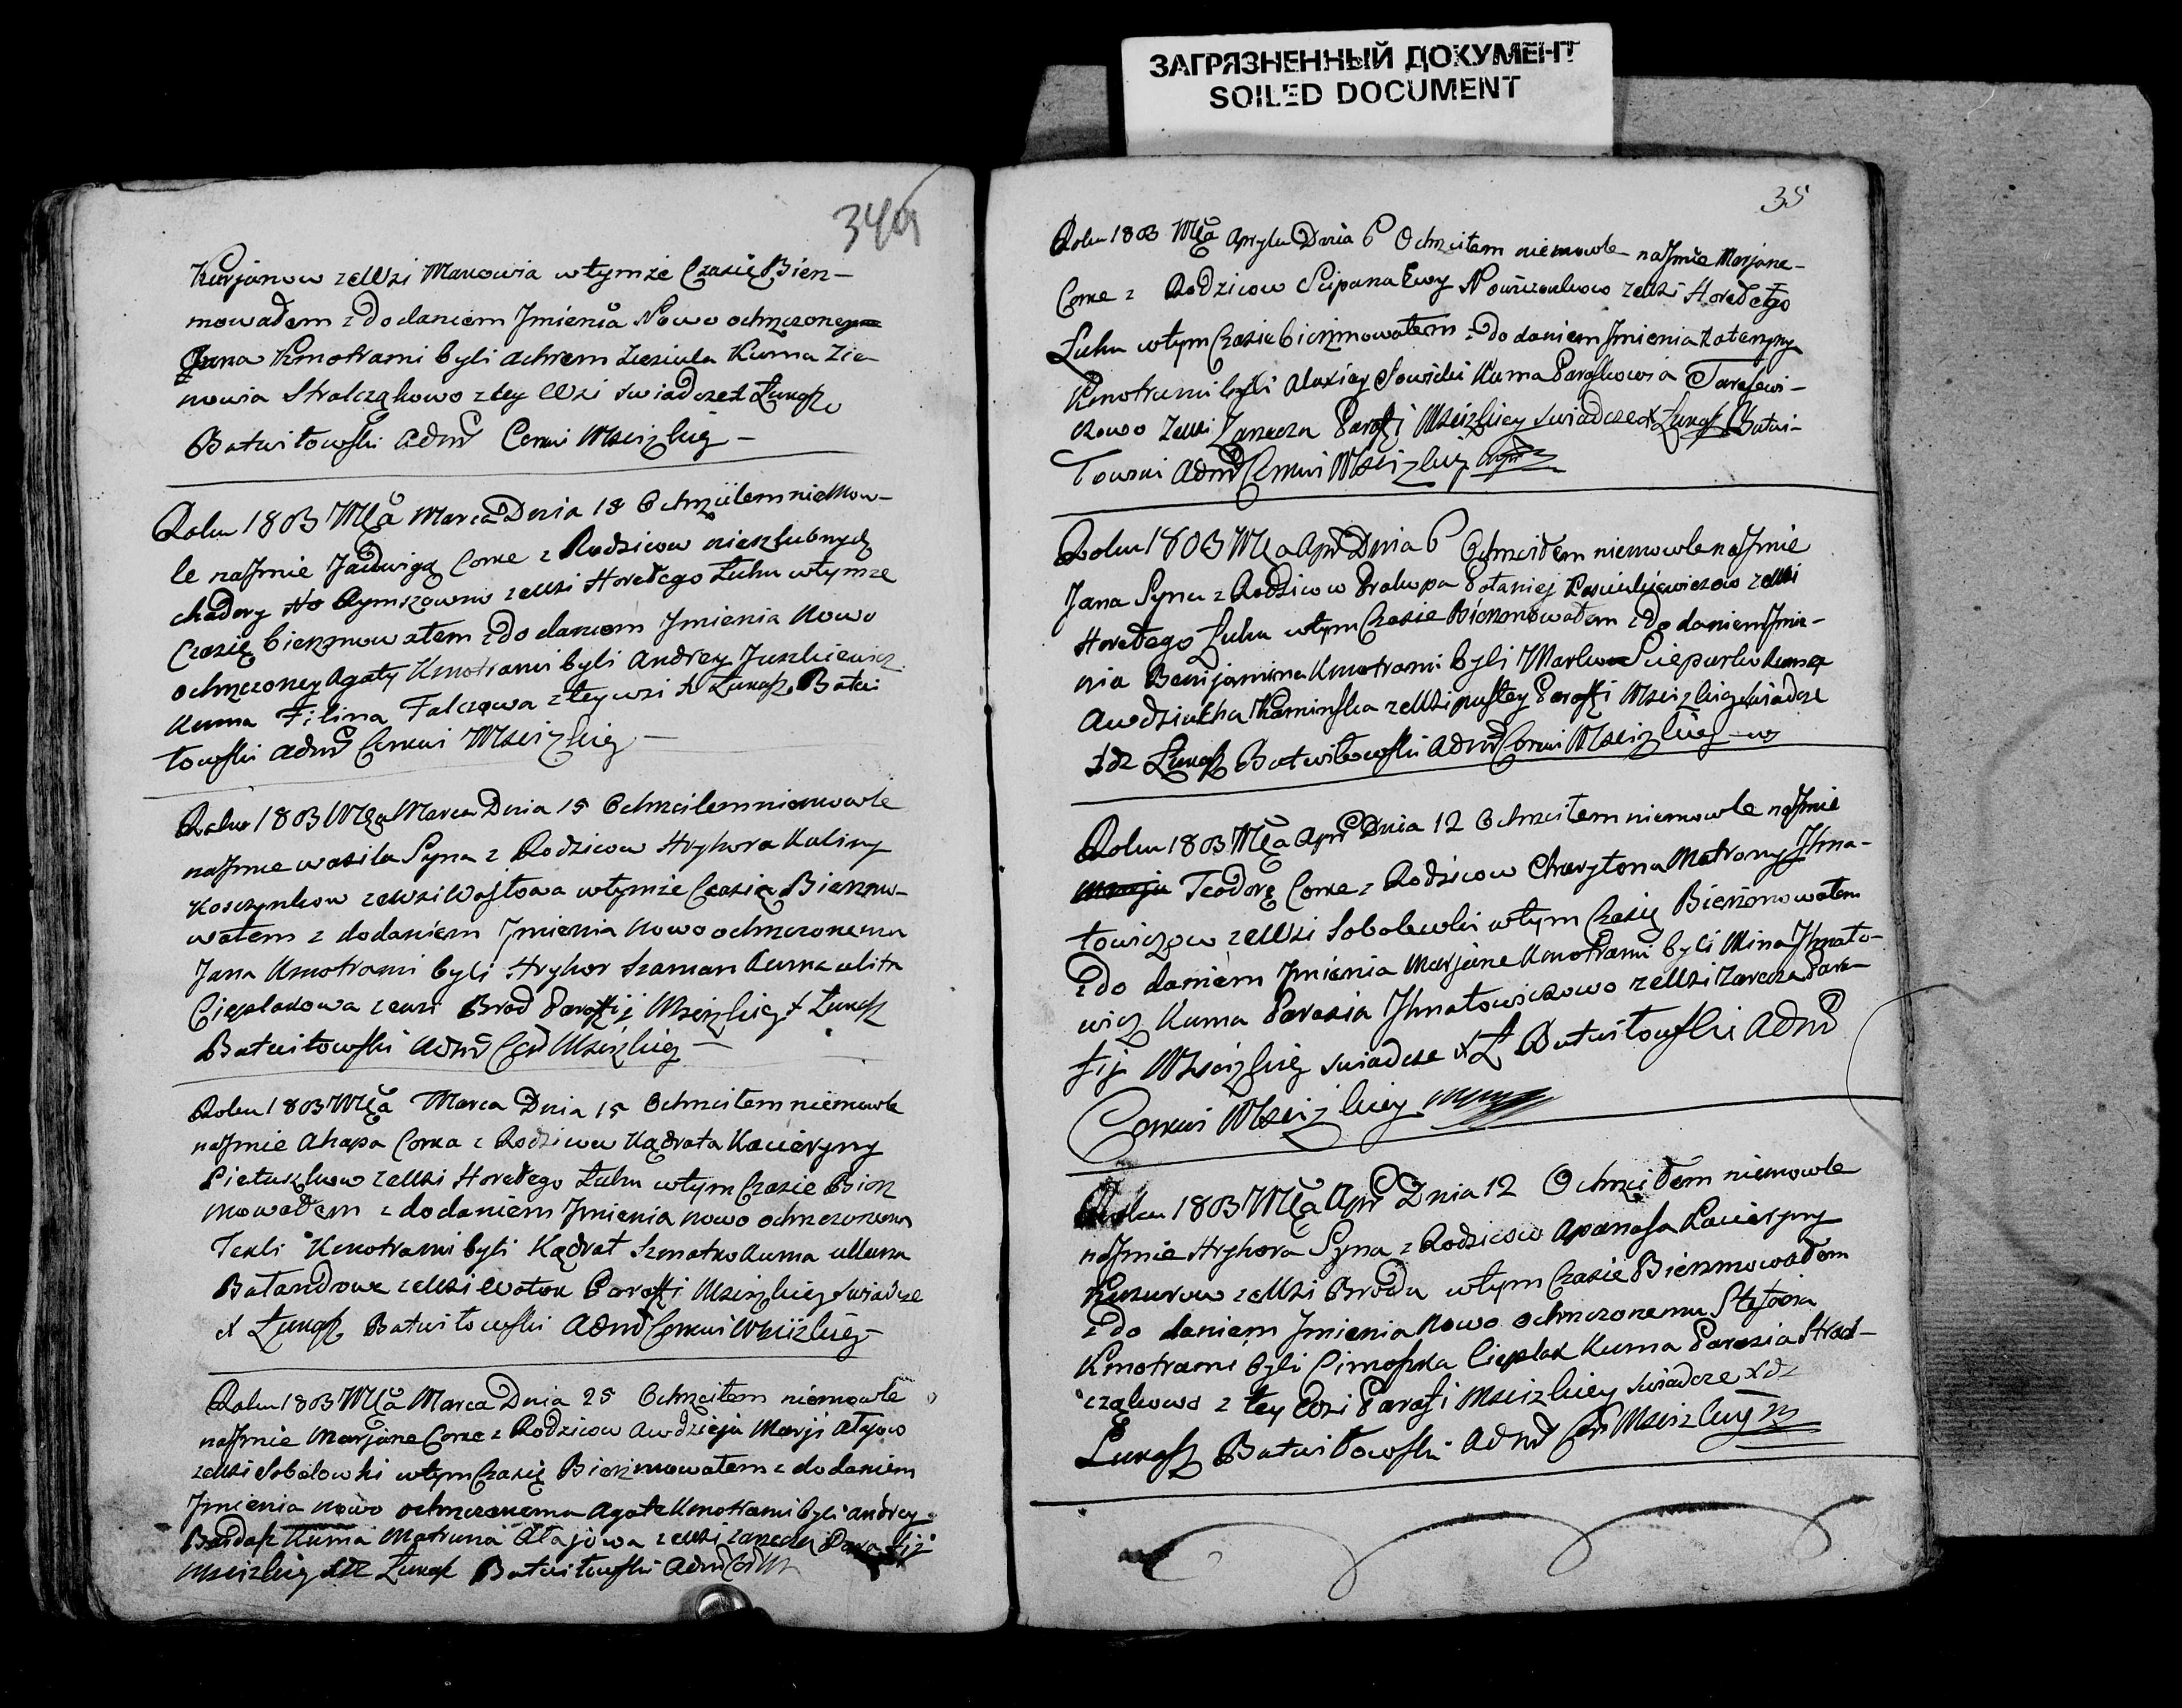 ЗАГРЯЗНЕННЫЙ ДОКУМЕНТ
SOILED DOCUMENT
Kurjanow zeWsi Makowia wtymże Czasie Bierz-
mowałem z dodaniem Jmienia Nowo ochrzczoney
Anna Kmotrami byli Achrem Kuma Zie-
nowia Stralczakowo z tey Wsi świadcze X Łukasz
Batwiłowski Adm Cerkwi Mscizkiey
Roku 1803 Mca Marca Dnia 18 Ochrzciłem niemow-
le naJmie Jadwigą Corke z Rodzicow nieszlubnych
Rymszowno zeWsi Horełego Łuhu wtymże
Czasię bierzmowałem z dodaniem Jmienia Nowo
ochrzczoney Agaty Kmotrami byli Andrey Juszkiewicz
Kuma Filina Falczowa z tey wsi X Łukasz Batwi
łowski Adm Cerkwi Mscizkiey
Roku 1803 Mca Marca Dnia 15 Ochrzciłem niemowle
naJmie wasila Syna z Rodzicow Hryhora Kuliny
zeWsi Wojtowa wtymże Czasię Bierzmo-
wałem z dodaniem Jmienia Nowo ochrzczonemu
Jana Kmotrami byli Hryhor Szaman Kuma ulita
Cieplakowa zewsi Brod Parafij Mscizkiey X Łukasz
Batwiłowski Adm Cer Mscizkiey
Roku 1803 Mca Marca Dnia 15 Ochrzciłem niemowle
naJmie Ahapa Corka z Rodzicow Kądrata Kacieryny
Pietuszkow zeWsi Horełego Łuhu wtym Czasie Bierz
mowałem z dodaniem Jmienia nowo ochrzczonemu
Tekli Kmotrami byli Kądrat Szmatko Kuma
Bałandowa zeWsi Parafij Mscizkiey świadcze
X Łukasz Batwiłowski Adm Cerkwi Mscizkiey
Roku 1803 Mca Marca Dnia 25 Ochrzciłem niemowle
naJmie Marjane Corke z Rodzicow Awdzieja Marji Ałajow
zeWsi Sobolowki wtym Czasię Bierzmowałem z dodaniem
Jmienia nowo ochrzczonemu Agate Kmotrami byli Andrey
Bardasz Kuma Matruna Ałajowa zeWsi Zarecza Parafij
Mscizkiey Xdz Łukasz Batwiłowski Adm
35
Roku 1803 Mca Apryla Dnia 6 Ochrzciłem niemowle naJmie Marjane
Corke z Rodzicow Scipana Ewy zeWsi Horełego
Łuhu wtym Czasie bierzmowałem z dodaniem Jmienia Kateryny
Kmotrami byli Alaxiey Sawicki Kuma Paraskowia Tarasewi-
czowo zeWsi Zarecza Parafij Mscizkiey świadcze X Łukasz Batwi-
łowski Adm Cerkwi Mscizkiey
Roku 1803 Mca Apr Dnia 6 Ochrzciłem niemowle naJmie
Jana Syna z Rodzicow Prakopa Połaniej zeWsi
Horełego Łuhu wtym Czasie Bierzmowałem z dodaniem Jmie-
nia Benijamina Kmotrami byli Marko Kuma
Awdziutka Kaminska zeWsi pustey Parafij Mscizkiey świadcze
Xdz Łukasz Batwiłowski Adm Cerkwi Mscizkiey
Roku 1803 Mca Apr Dnia 12 Ochrzciłem niemowle naJmie
Teodorę Corke z Rodzicow Charytona Matrony Jhna-
towiczow zeWsi Sobolewki wtym Czasię Bierzmowałem
z dodaniem Jmienia Marjane Kmotrami byli Mina Jhnato-
wicz Kuma Parasia Jhnatowiczowo zeWsi Zarecza Para-
fij Mscizkiey świadcze X Ł Batwiłowski Adm
Cerkwi Mscizkiey
Roku 1803 Mca Apr Dnia 12 Ochrzciłem niemowle
naJmie Hryhora Syna z Rodzicow Apanasa Kacieryny
zeWsi Brodu wtym Czasie Bierzmowałem
z dodaniem Jmienia Nowo ochrzczonemu
Kmotrami byli Cimoszka Cieplak Kuma Parasia Stral-
czakowo z tey Wsi Parafi Mscizkiey świadcze Xdz
Łukasz Batwiłowski Adm Cer Mscizkiey